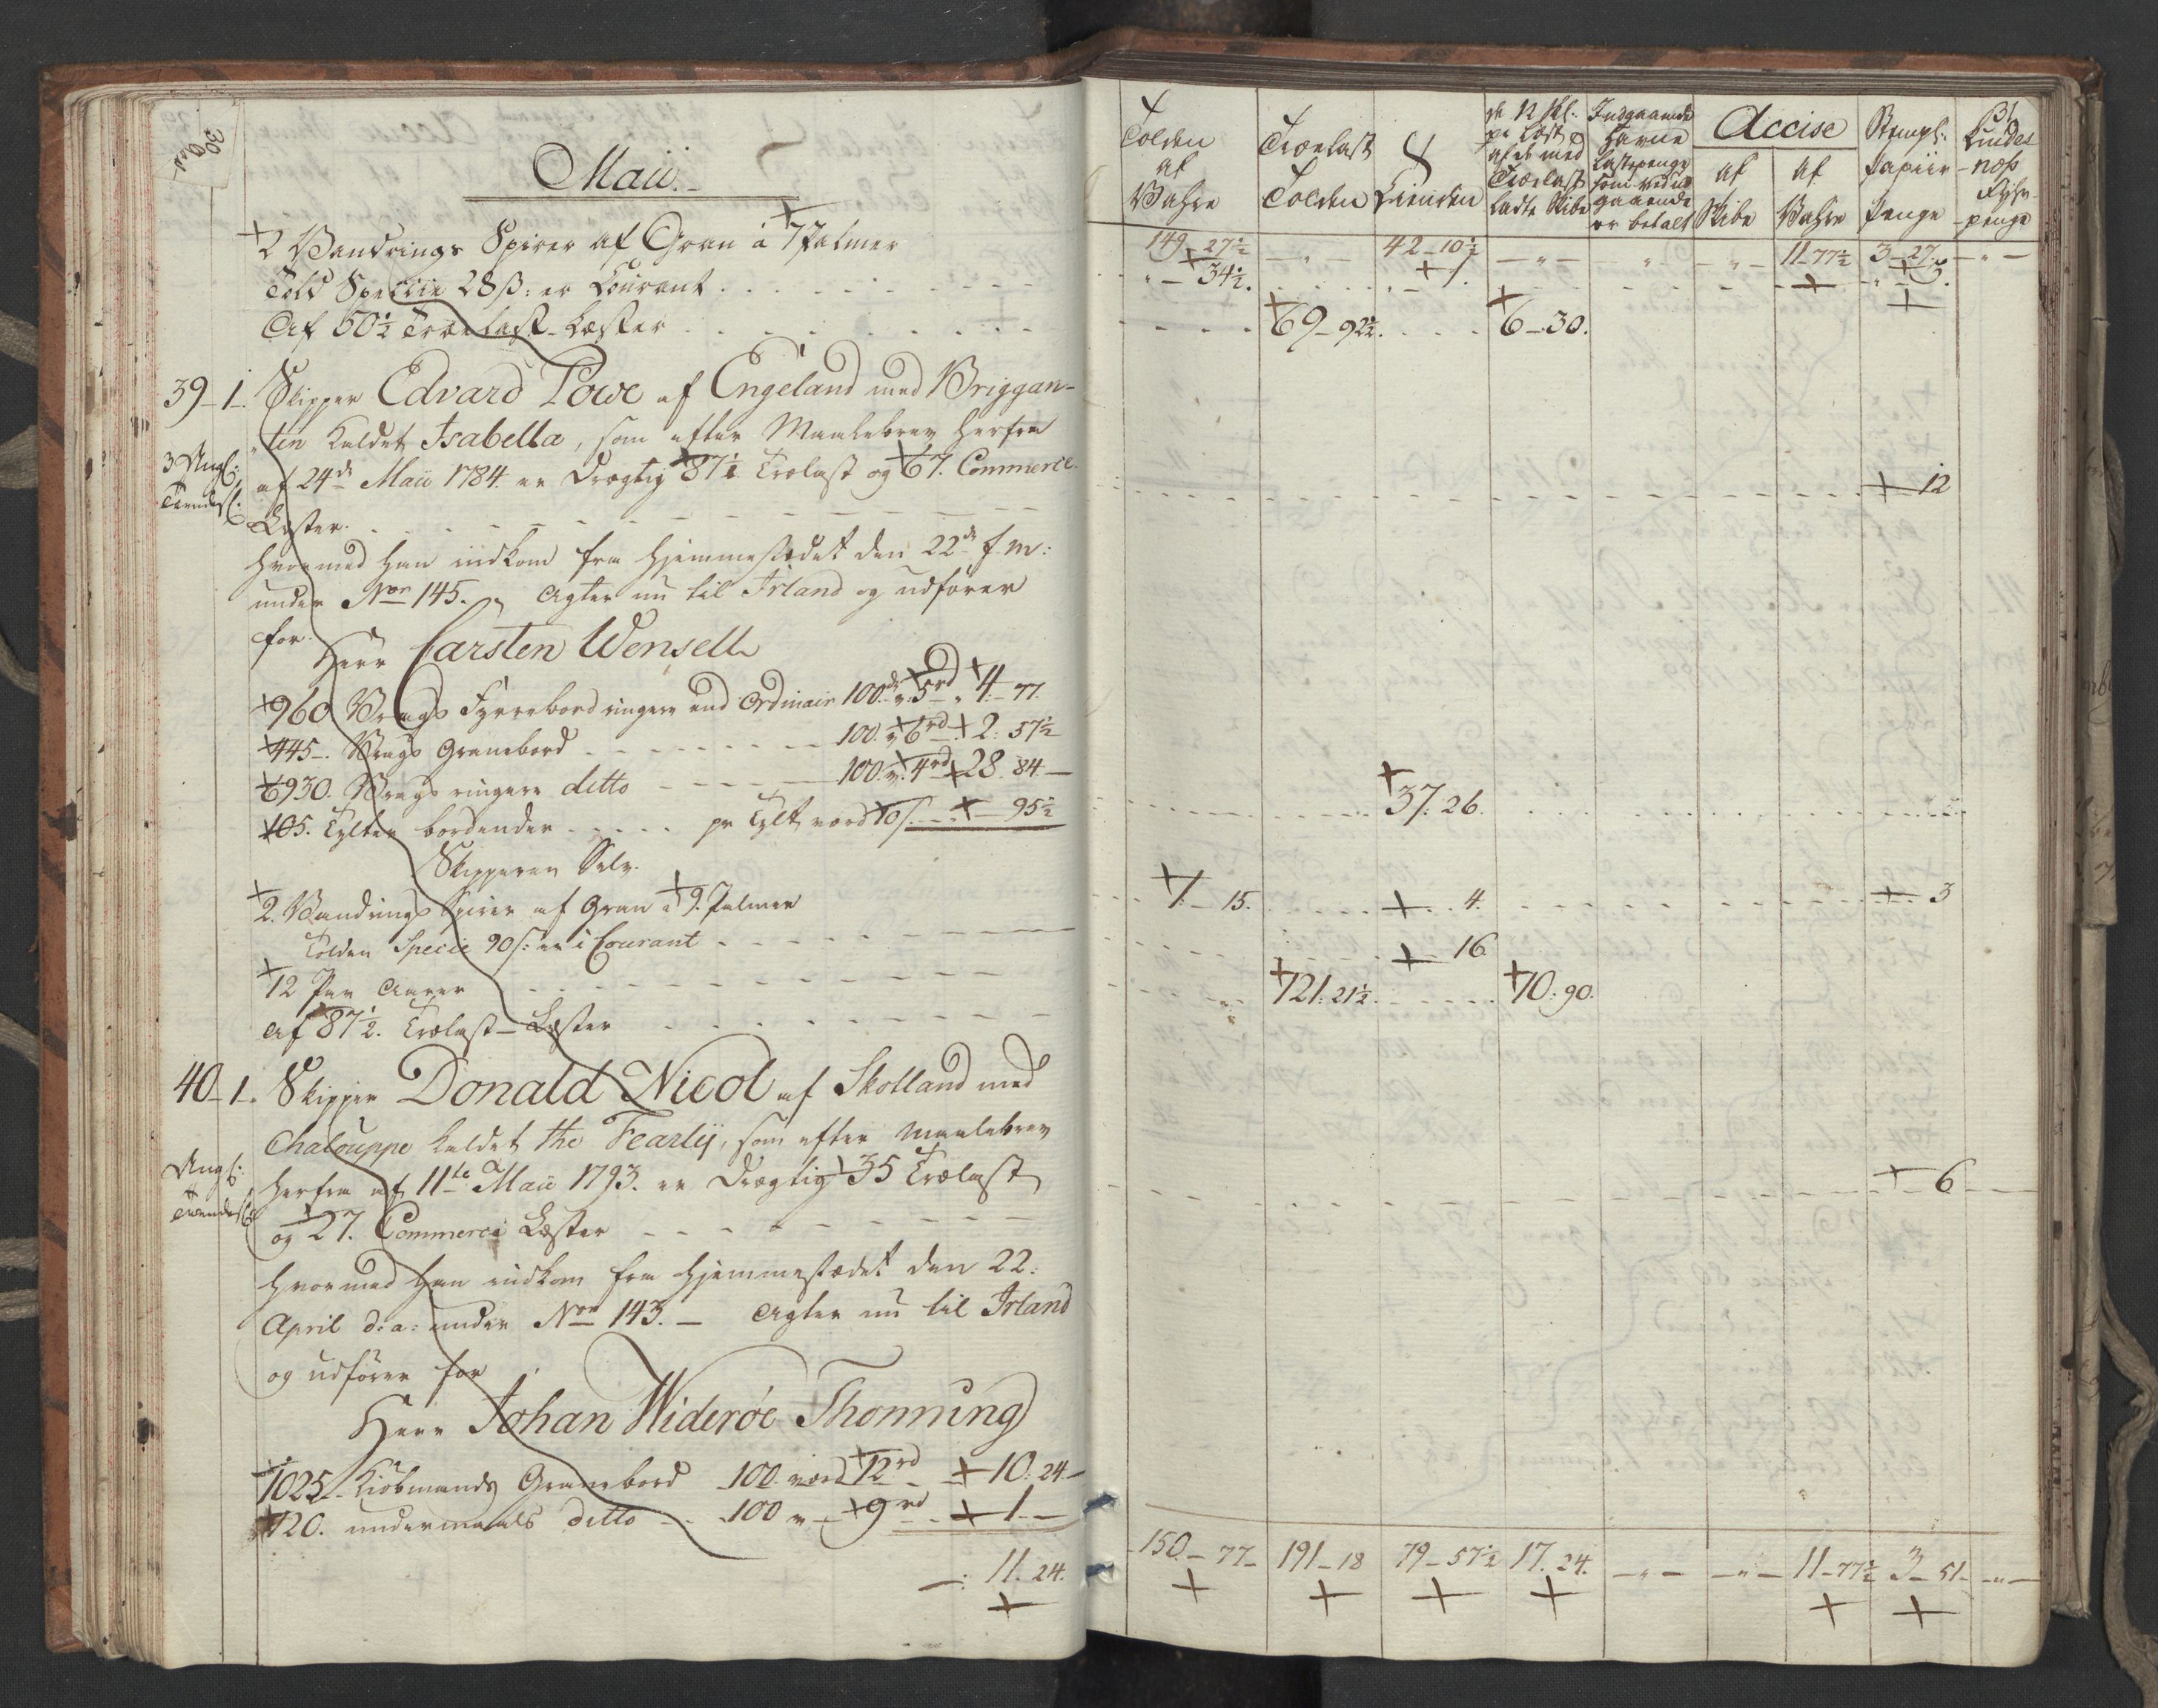 Maii.
2 Vandrings Spirer af Gran á 7 Palmer
Told Spe￼cie 28 ß: er Courant
Af 50½ Trælast-Læster
39-1. Skipper Edvard Powe af Engeland med Briggan-
tin kaldet Isabella, som efter Maalebrev herfra
af 24de Maii 1784. er drægtig 87½ Trælast og 67. Commerce
Læster.
hvormed han indkom fra Hjemmestædet den 22de f. m:
under Nor 145. Agter nu til Irland og udfører
for
Herr Carsten Wensell
960 Vrags Fyrrebord ringere end Ordinair 100de v. 5rd 4. 77.
445. Vrags Granebord 100. v 6rd 2: 57½
6930. Vrags ringere ditto 100. v. 4rd 28. 84
105. Tylter bordender pr Tylt værd 10 s. 95½
Skipperen Selv.
2. Vandrings Spirer af Gran a 9. Palmer
Tolden Specie 90 s: er i Courant
12 Par Aarer
af 87½. Trælast-Læster
40-1. Skipper Donald Nicol af Skotland med
Chalouppe kaldet the Fearlij, som efter Maalebrev
herfra af 11te Maii 1793. er drægtig 35 Trælast
og 27. Commerce Læster
hvormed han indkom fra Hjemmestædet den 22:
April d: a: under Nor 143. Agter nu til Irland
og udfører for
Herr Johan Widerøe Thonning
1025 Kiøbmands Granebord 100. værd 12rd 10. 24
120. undermaals ditto 100 v 9rd 1
11. 24.
31
Tolden af Vahre
Trælast Tolden
Tienden
de 12 skl: pr Læst af de med Trælast ladte Skibe
Indgaaende Havne Lastepenge som ved udgaaende er betalt
Accise
af Skibe
af Vahre
Stempl: Papiir Penge
Lindesnæs Fyhr-penge
149-27½ 42-10½ 11-77½ 3-27
34½. 1. 3.
69-92½. 6-30.
12
37. 26.
1. 15. 4. 3
16
121. 21½. 10. 90.
6
150.-77 191-18 79-57½ 17. 24. 11-77½ 3-51